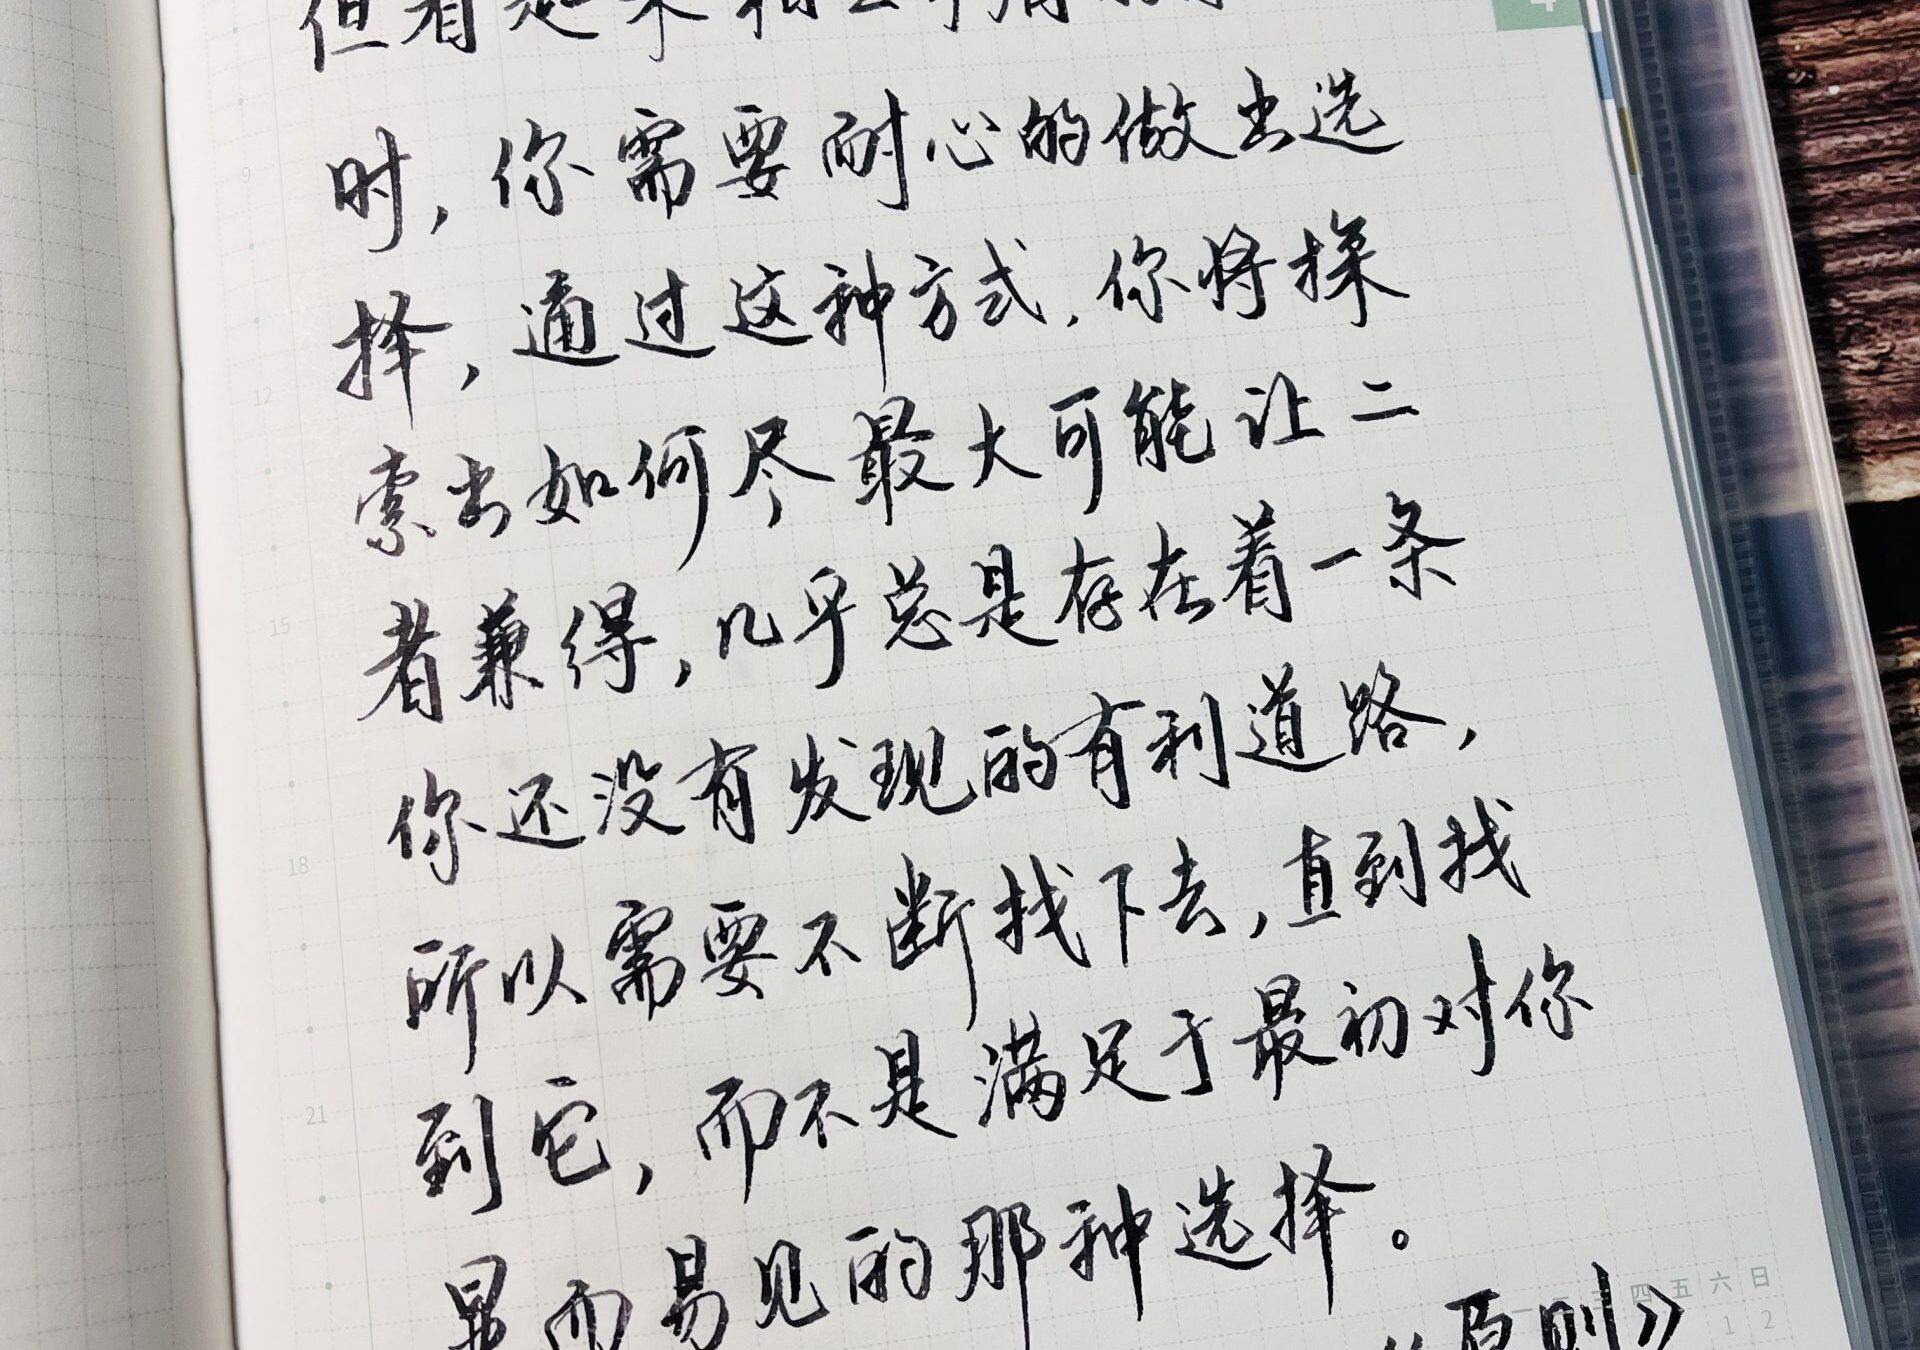 但看起来相互矛盾的
时，你需要耐心的做出选
择，通过这种方式，你将探
索出如何尽最大可能让二
者兼得，几乎总是存在着一条
你还没有发现的有利道路，
所以需要不断找下去，直到找
到它，而不是满足于最初对你
显而易见的那种选择。
《原则》
4
9
12
15
18
21
一二三四五六日
1 2